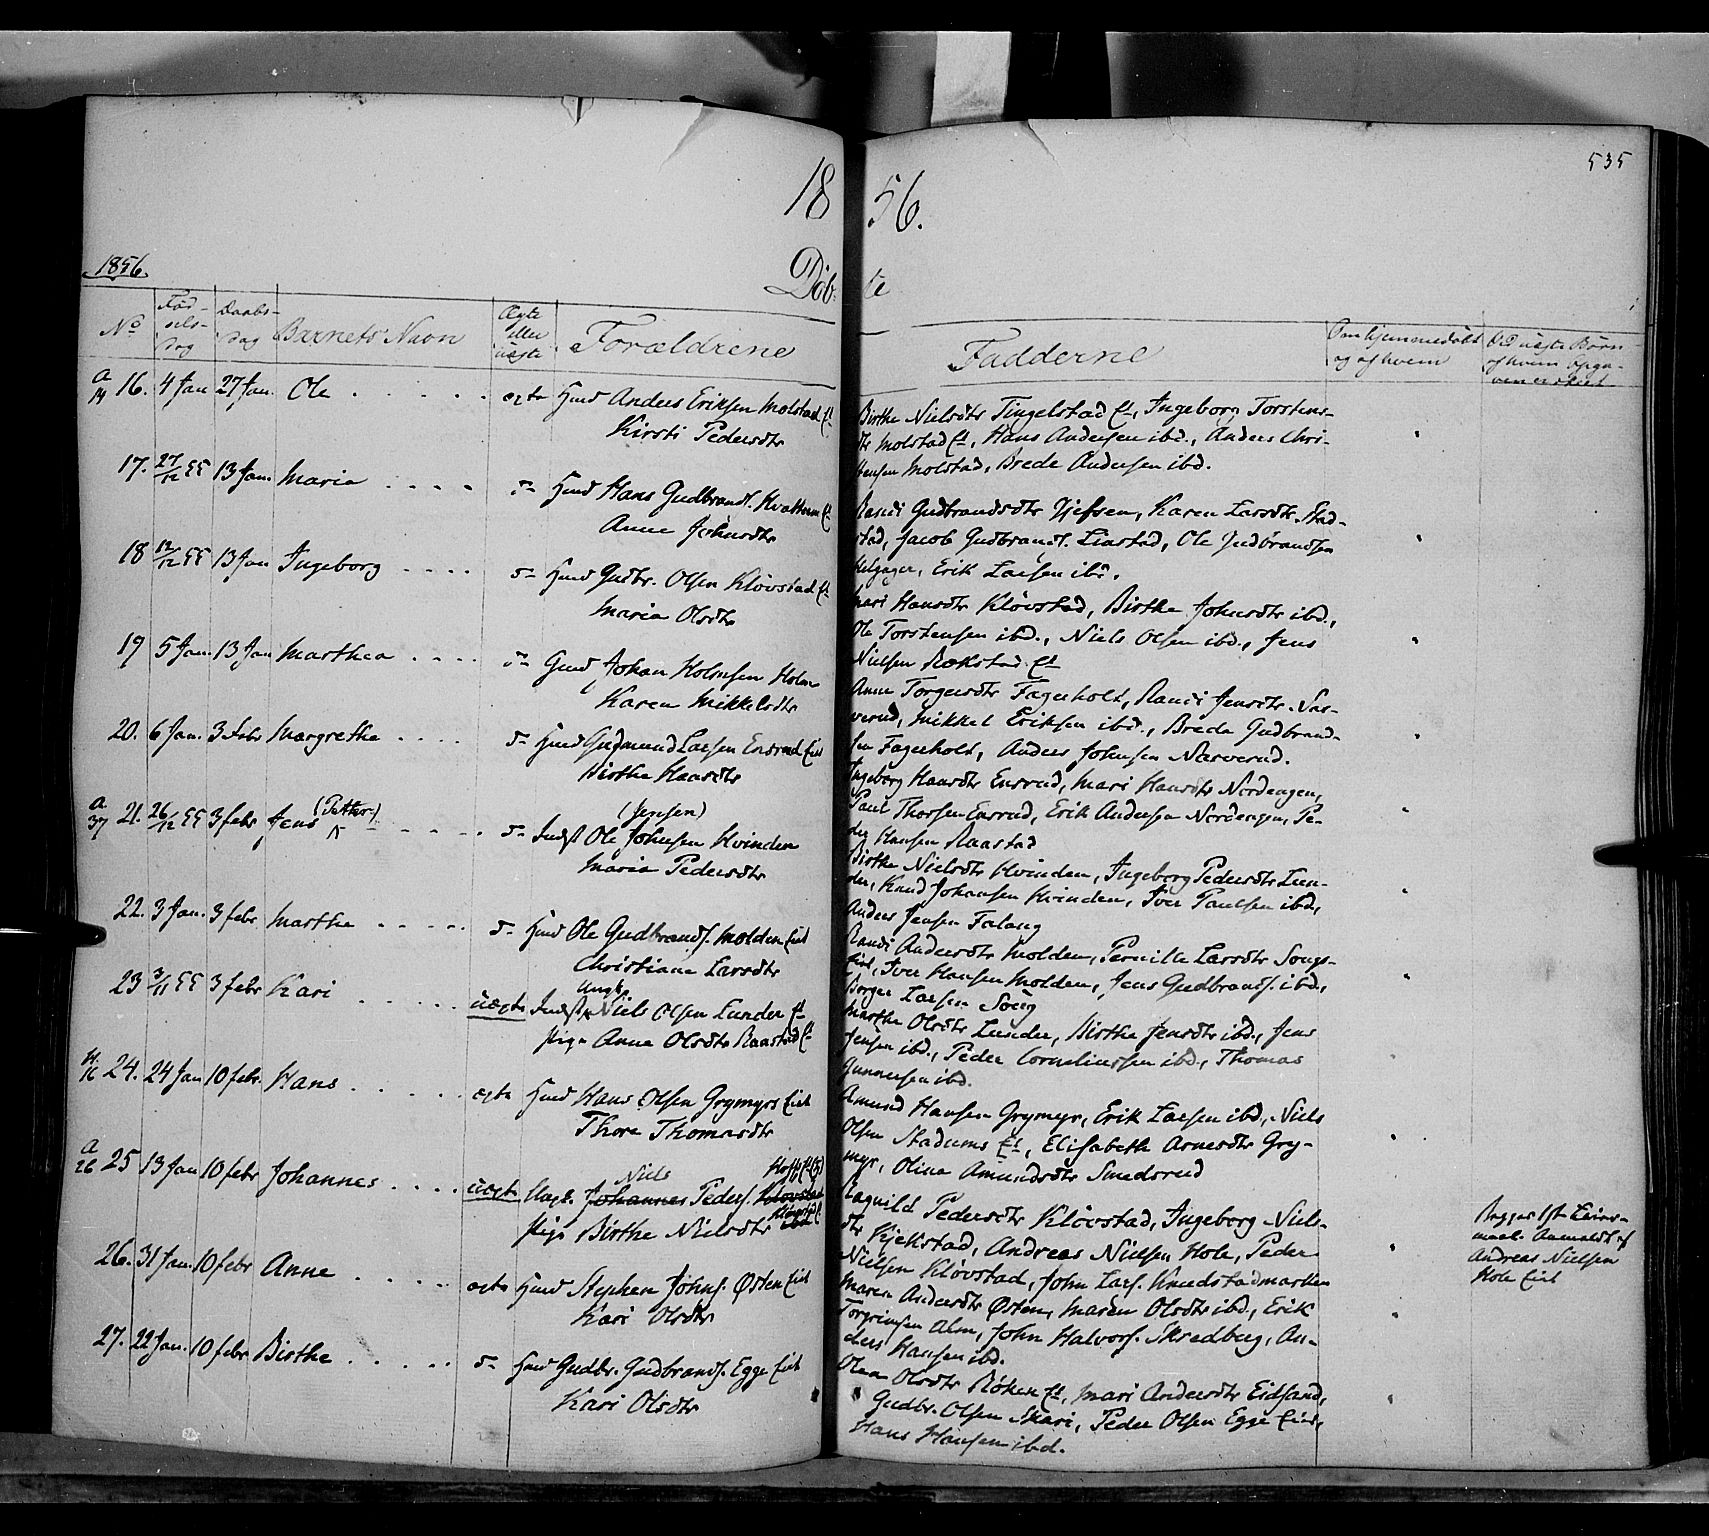 535
18 56.
1856.
Döbte
No
Fød-
sels-
dag
Daabs-
dag
Barnets Navn
Ægte
eller
uægte
Forældrene
Fadderne
Om hjemmedøbt
og af hvem
Ved uægte Børn
af hvem Opga-
ven er skeet
A 14 16. 4 Jan 27 Jan. Ole ægte Hmd Anders Eriksen Molstad Et
Kirsti Pedersdtr
Birthe Nielsdtr Tingelstad Et, Ingeborg Torstens-
dtr Molstad Et, Hans Andersen ibd., Anders Chri-
stensen Molstad, Brede Andersen ibd.
17. 27/12 55 13 Jan. Maria Hmd Hans Gudbrands. Hvattum Et
Anne Johnsdtr
Randi Gudbrandsdtr, Karen Larsdtr Stad-
stad, Jacob Gudbrands. Linstad, Ole Gudbrandsen
Helgager, Erik Larsen ibd.
18 12/12 55 13 Jan Ingeborg Hmd Gudbr. Olsen Kløvstad Et
Maria Olsdtr
Mari Hansdtr Kløvstad, Birthe Johnsdtr ibd.,
Ole Torstensen ibd., Niels Olsen ibd., Jens
Nielsen Rækstad Et
19 5 Jan. 13 Jan Marthea Johan Holmsen Holm
Karen Mikkelsdtr
Anne Torgersdtr Fagerholt, Randi Jensdtr Nar-
verud, Mikkel Eriksen ibd., Brede Gudbrand-
sen Fagerholt, Anders Johnsen Narverud.
20. 6 Jan. 3 Febr Margrethe Hmd Gudmund Larsen Ensrud
Birthe Haarsdtr
Ingeborg Haarsdtr Ensrud, Mari Hansdtr Nordengen,
Paul Thorsen Ensrud, Erik Andersen Nordengen, Pe-
der Hansen Raastad
A 37 21. 26/12 55 3 febr Jens (Petter) Indst Ole Johnsen (Jensen) Hvinden
Maria Pedersdtr
Birthe Nielsdtr Hvinden, Ingeborg Pedersdtr Lun-
der, Knud Johansen Hvinden, Iver Paulsen ibd,
Anders Jensen Falang
22. 3 Jan. 3 febr Marthe Hmd Ole Gudbrands. Molden
Christiane Larsdtr
Randi Andersdtr Molden, Pernille Larsdtr Songs-
Iver Hansen Molden, Jens Gudbrands. ibd,
Borger Larsen Søug
23 3/11 55 3 febr Kari uægte Ungk. Niels Olsen Lunder Et
Pige Anne Olsdtr Raastad Et
Marthe Olsdtr Lunder, Birthe Jensdtr ibd., Jens
Jensen ibd., Peder Corneliussen ibd., Thomas
Gunnersen ibd.
24. 24 Jan 10 febr. Hans ægte Hmd Hans Olsen Grymyr
Thore Thomasdtr
Amund Hansen Grymyr, Erik Larsen ibd, Niels
Olsen Stadums Et, Elisabeth Arnesdtr Gry-
myr, Olina Amundsdtr Smedsrud
A 26 25 13 Jan 10 febr Johannes uægte Ungk. Johannes Niels Peders. Kløvstad
Pige Birthe Nielsdtr
Ragnild Pedersdtr Kløvstad, Ingeborg Niels-
dtr Kjekstad, Andreas Nielsen Hole, Peder
Nielsen Kløvstad, John Lars. Knudstadmarken
Begges 1ste Leier-
maal. Anmeldt af
Andreas Nielsen
Hole
26. 31 Jan. 10 febr Anne ægte Hmd Stephen Johns. Østen
Kari Olsdtr
Maren Andersdtr Østen, Maren Olsdtr ibd., Erik
Torgrimsen Alm, John Halvors. Skredberg, An-
ders Hansen ibd.
27. 22 Jan. 10 febr Birthe Hmd Gudbr. Gudbrands. Egge
Kari Olsdtr
Olea Olsdtr Røken Et, Mari Andersdtr Eidsand,
Gudbr. Olsen Skari, Peder Olsen Egge
Hans Hansen ibd.